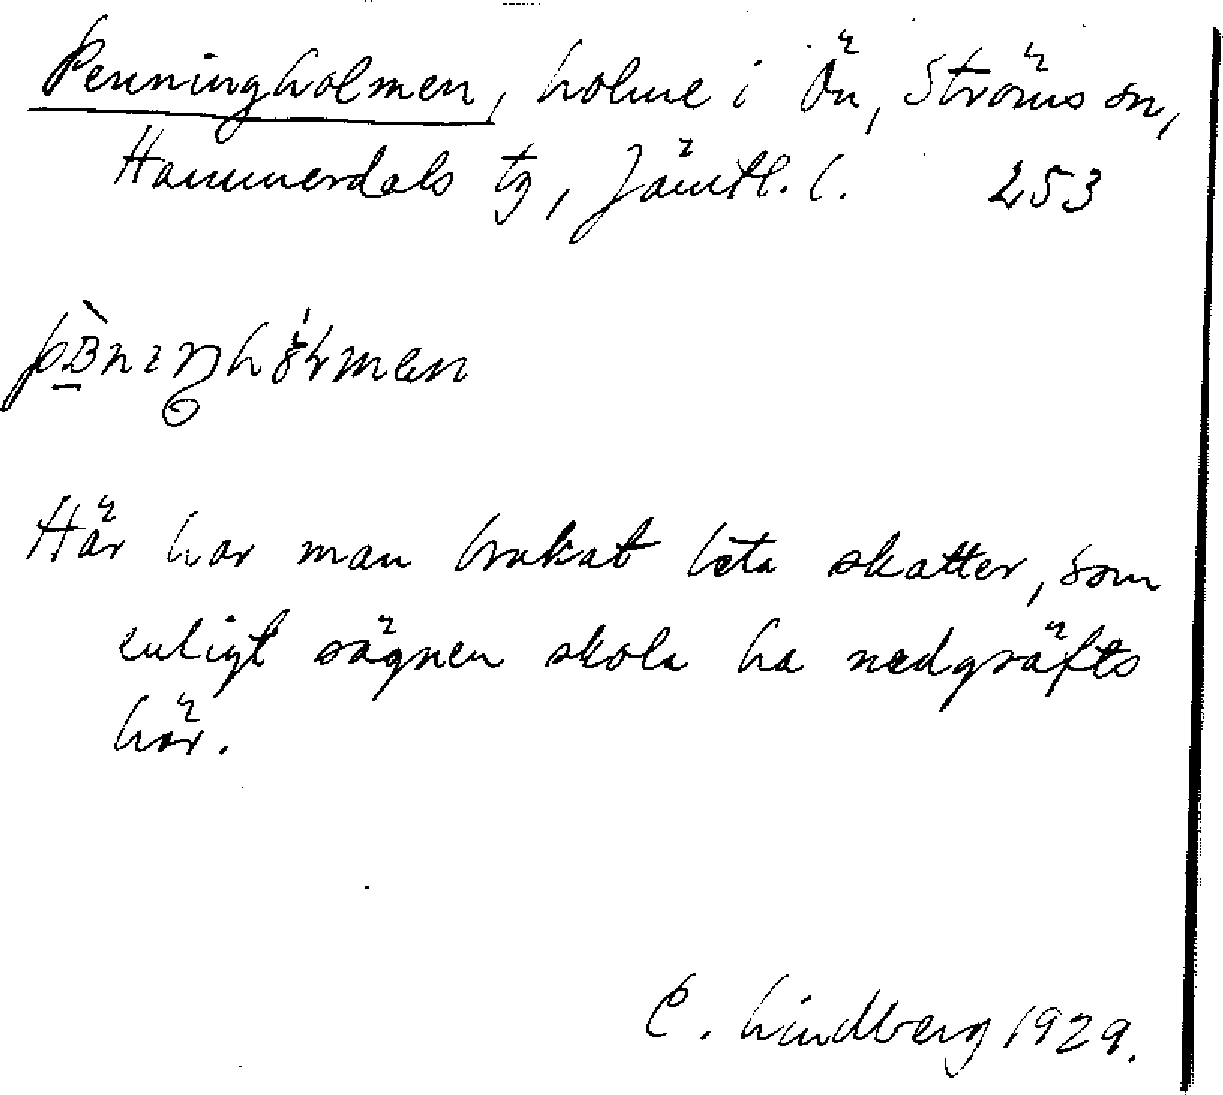 Penningholmen, holme i Ön, Ströms sn,
Hammerdals tg, Jämtl. l. 253
Här har man brukat leta skatter, som
enligt sägnen skola ha nedgräfts
här.
C. Lindberg 1929.